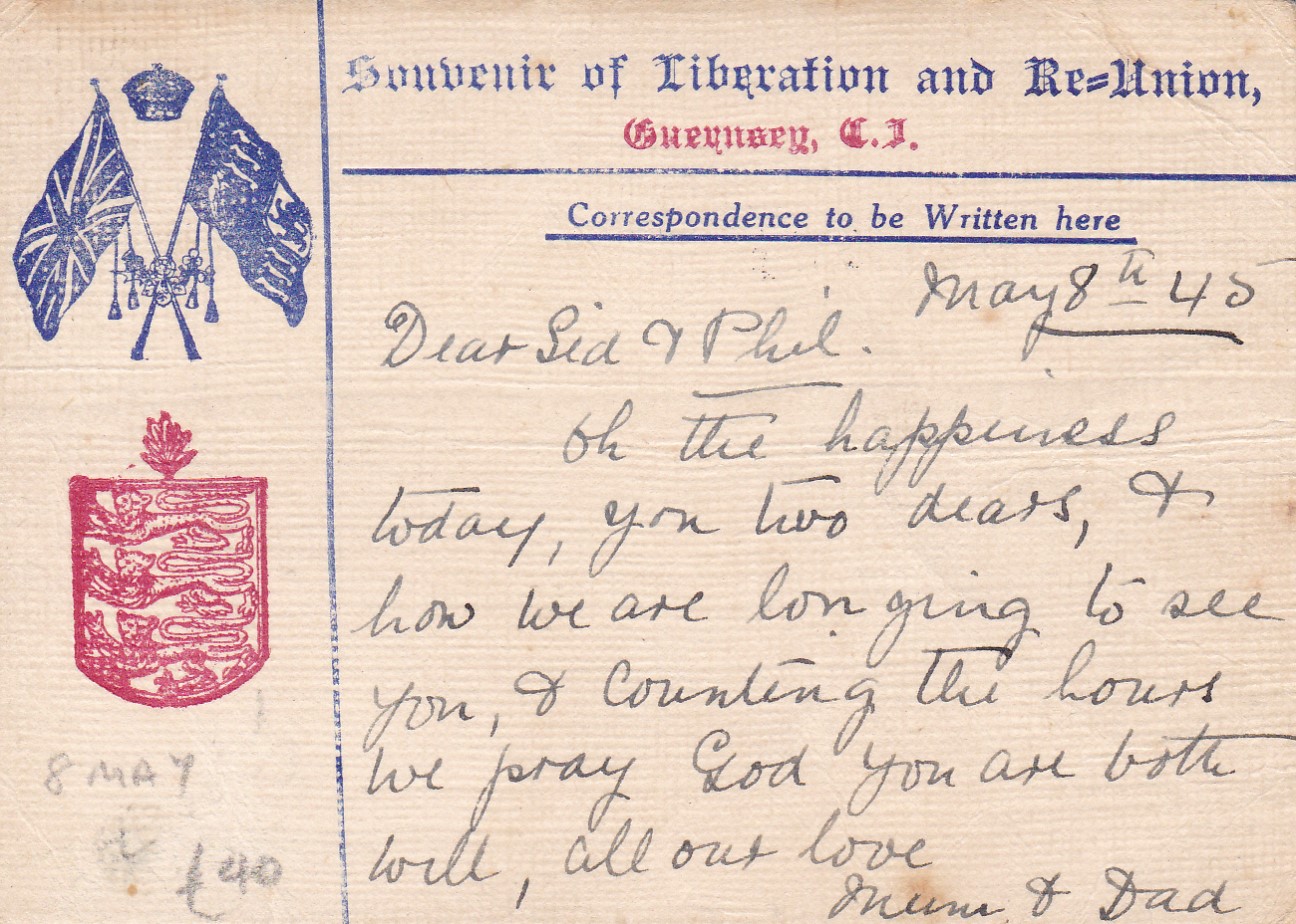 Souvenir of Liberation and Re=Union,
Guernsey, C.I.
Correspondence to be Written here
May 8th 45
Dear Sid & Phil.
Oh the happiness
today, you two dears, &
how we are longing to see
you, & counting the hours
we pray God you are both
well, all our love
Mum & Dad
8 MAY
£40